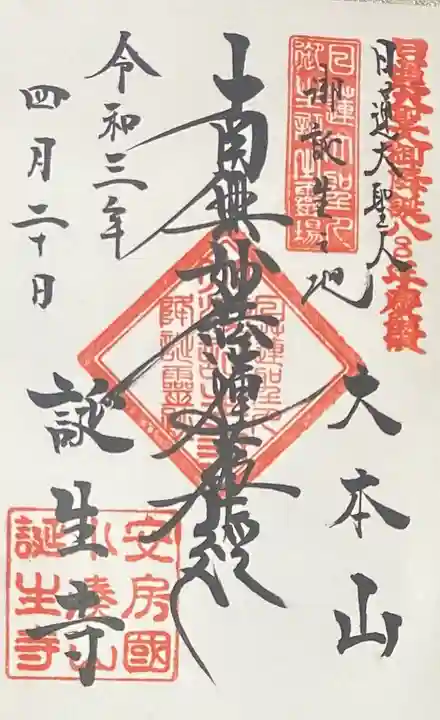 日蓮大聖人御降誕八〇〇年慶讃
日蓮大聖人
御誕生之地
日蓮大聖人
御生誕霊場
大本山
南無妙法蓮華経
日蓮聖人
降誕霊
誕生寺
安房國
小湊山
誕生寺
令和三年
四月二十日